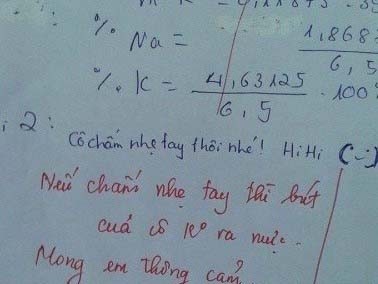 % Na = 1,868
6,5
% K = 4,63125 . 100%
6,5
2:
Cô chấm nhẹ tay thôi nhé! HiHi (-:)
Nếu chấm nhẹ tay thì bút
của cô ko ra mực.
Mong em thông cảm.